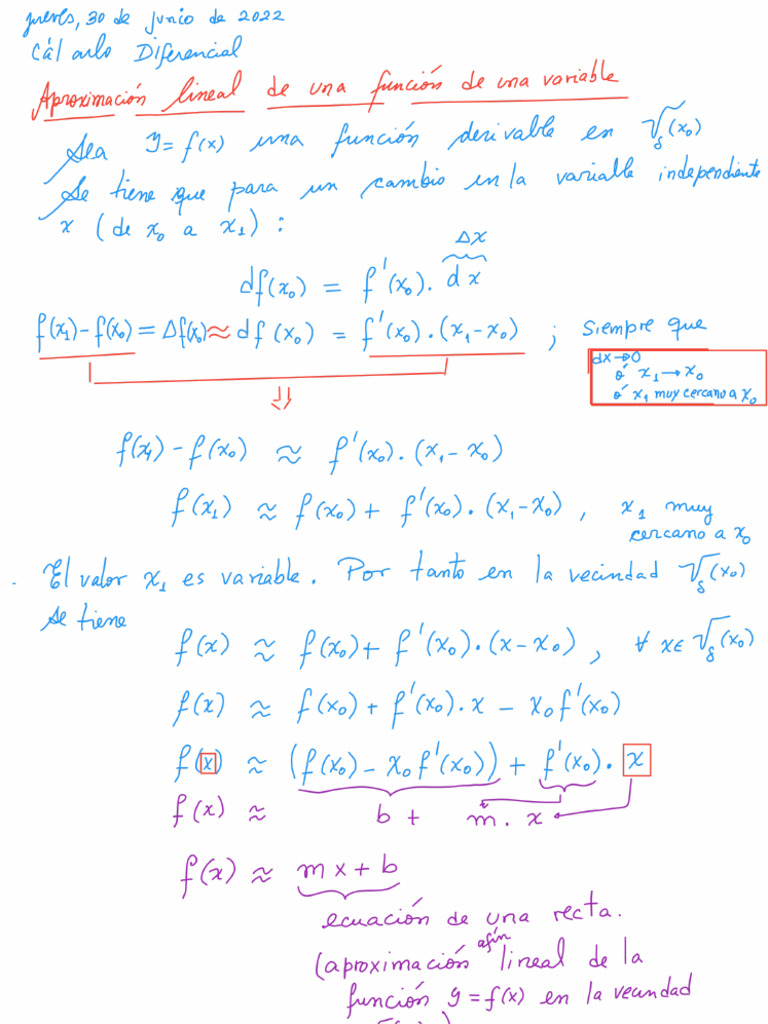 Jueves, 30 de junio de 2022
Cálculo Diferencial
Aproximación lineal de una función de una variable
Sea y = f(x) una función derivable en V_δ(x₀)
Se tiene que para un cambio en la variable independiente
x (de x₀ a x₁) :
Δx
df(x₀) = f'(x₀). dx
f(x₁) - f(x₀) = Δf(x₀) ≈ df(x₀) = f'(x₀).(x₁-x₀) ; siempre que
dx→0
ó x₁→x₀
ó x₁ muy cercano a x₀
⇓
f(x₁) - f(x₀) ≈ f'(x₀).(x₁-x₀)
f(x₁) ≈ f(x₀) + f'(x₀).(x₁-x₀) , x₁ muy
cercano a x₀
. El valor x₁ es variable. Por tanto en la vecindad V_δ(x₀)
se tiene
f(x) ≈ f(x₀) + f'(x₀).(x-x₀) , ∀ x∈ V_δ(x₀)
f(x) ≈ f(x₀) + f'(x₀).x - x₀f'(x₀)
f(x) ≈ (f(x₀) - x₀f'(x₀)) + f'(x₀). x
f(x) ≈ b + m. x
f(x) ≈ mx + b
ecuación de una recta.
afín
(aproximación lineal de la
función y = f(x) en la vecindad